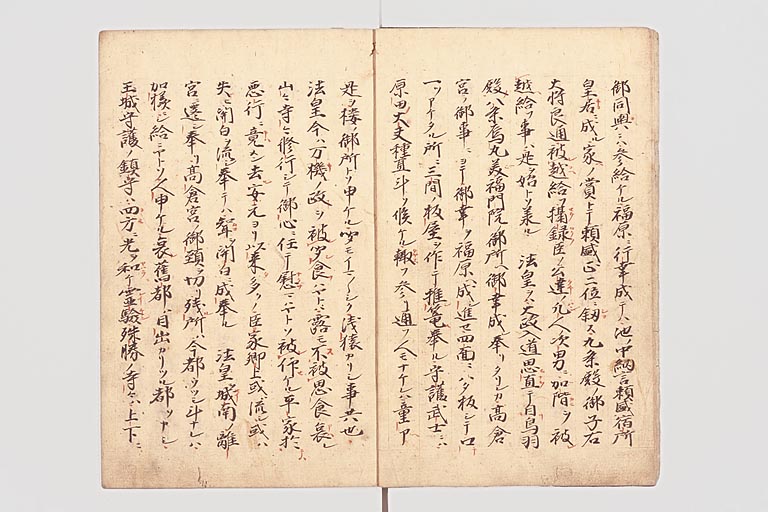 御同輿ニハ参給ケル福原ニ行幸成テハ池ノ中納言頼盛宿所
皇居ニ成ル家ノ賞トテ頼盛正二位ニ叙ス九条殿ノ御子右
大将良通被越給フ摂録臣ノ公達凡人ノ次男ニ加階ヲ被
越給フ事ハ是始トソ承ル 法皇ヲハ大政入道思直テ自鳥羽
殿八条烏丸美福門院御所ヘ御幸成奉リタリシカ高倉
宮ノ御事ニヨテ御幸ヲ福原ヘ成進セ四面ニハタ板シテ口
一ツアケタル所ニ三間ノ板屋ヲ作テ推篭奉ル守護武士ニハ
原田大夫種直斗ソ候ケル輙ク参リ通フ人モナケレハ童ア
是ヲ楼ノ御所トソ申ケル聞モイマイマシク浅猿カリシ事共也
法皇今ハ万機ノ政ヲ被聞食ハヤトハ露モ不被思食哀レ
山々寺々修行シテ御心ニ任テ慰ハヤトソ被仰ケル平家ノ
悪行ニ竟メシ去安元ヨリ以来多クノ臣家卿上或ハ流シ或ハ
失ヒ関白流シ奉テハ聟ヲ関白成奉ル 法皇ヲ城南ノ離
宮ニ遷シ奉リ高倉宮ノ御頸ヲ切リ残所ハ今都ウツシ斗ナレハ
加様ニシ給ニヤトソ人申ケル哀旧都ハ目出カリツル都ソカシ
王城守護ノ鎮守ハ四方ニ光ヲ和ケ霊験殊勝ノ寺々ハ上下ニ